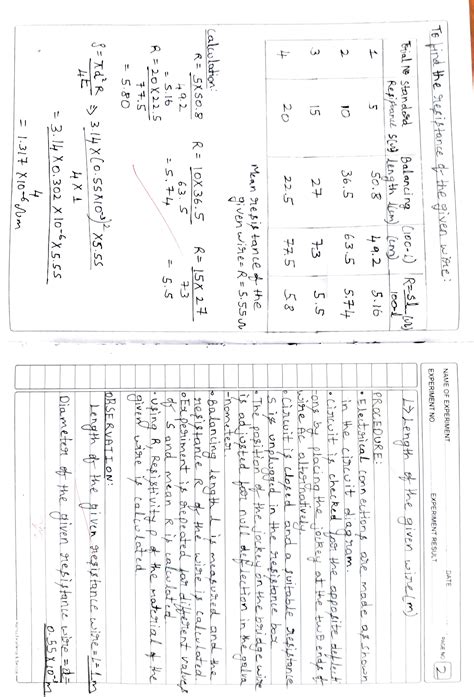 To find the resistance of the given wire:
Trial No Standard Resistance S(Ω) Balancing length l(cm) (100-l) (cm) R=Sl/100-l (Ω)
1 5 50.8 49.2 5.16
2 10 36.5 63.5 5.74
3 15 27 73 5.5
4 20 22.5 77.5 5.8
Mean resistance of the
given wire = R = 5.55Ω
Calculation:
R = 5X50.8 / 49.2 = 5.16
R = 10X36.5 / 63.5 = 5.74
R = 15X27 / 73 = 5.5
R = 20X22.5 / 77.5
= 5.80
ρ = πd²R / 4L ⇒ 3.14X(0.55X10⁻³)²X5.55 / 4X1
= 3.14X0.302X10⁻⁶X5.55 / 4
= 1.317X10⁻⁶Ωm
NAME OF EXPERIMENT DATE
EXPERIMENT NO. EXPERIMENT RESULT PAGE NO. 2
L→Length of the given wire(m)
PROCEDURE:
• Electrical connections are made as shown
in the circuit diagram.
• Circuit is checked for the opposite deflect
-ons by placing the jockey at the two ends of
wire AC alternatively.
• Circuit is closed and a suitable resistance
S is unplugged in the resistance box
• The position of the jockey on the bridge wire
is adjusted for null deflection in the galva
-nometer.
• Balancing length l is measured and the
resistance R of the wire is calculated
• Experiment is repeated for different values
of S and mean R is calculated
• Using R, Resistivity ρ of the material of the
given wire is calculated
OBSERVATION:
Length of the given resistance wire = L = 1m
Diameter of the given resistance wire = d =
0.55X10⁻³m